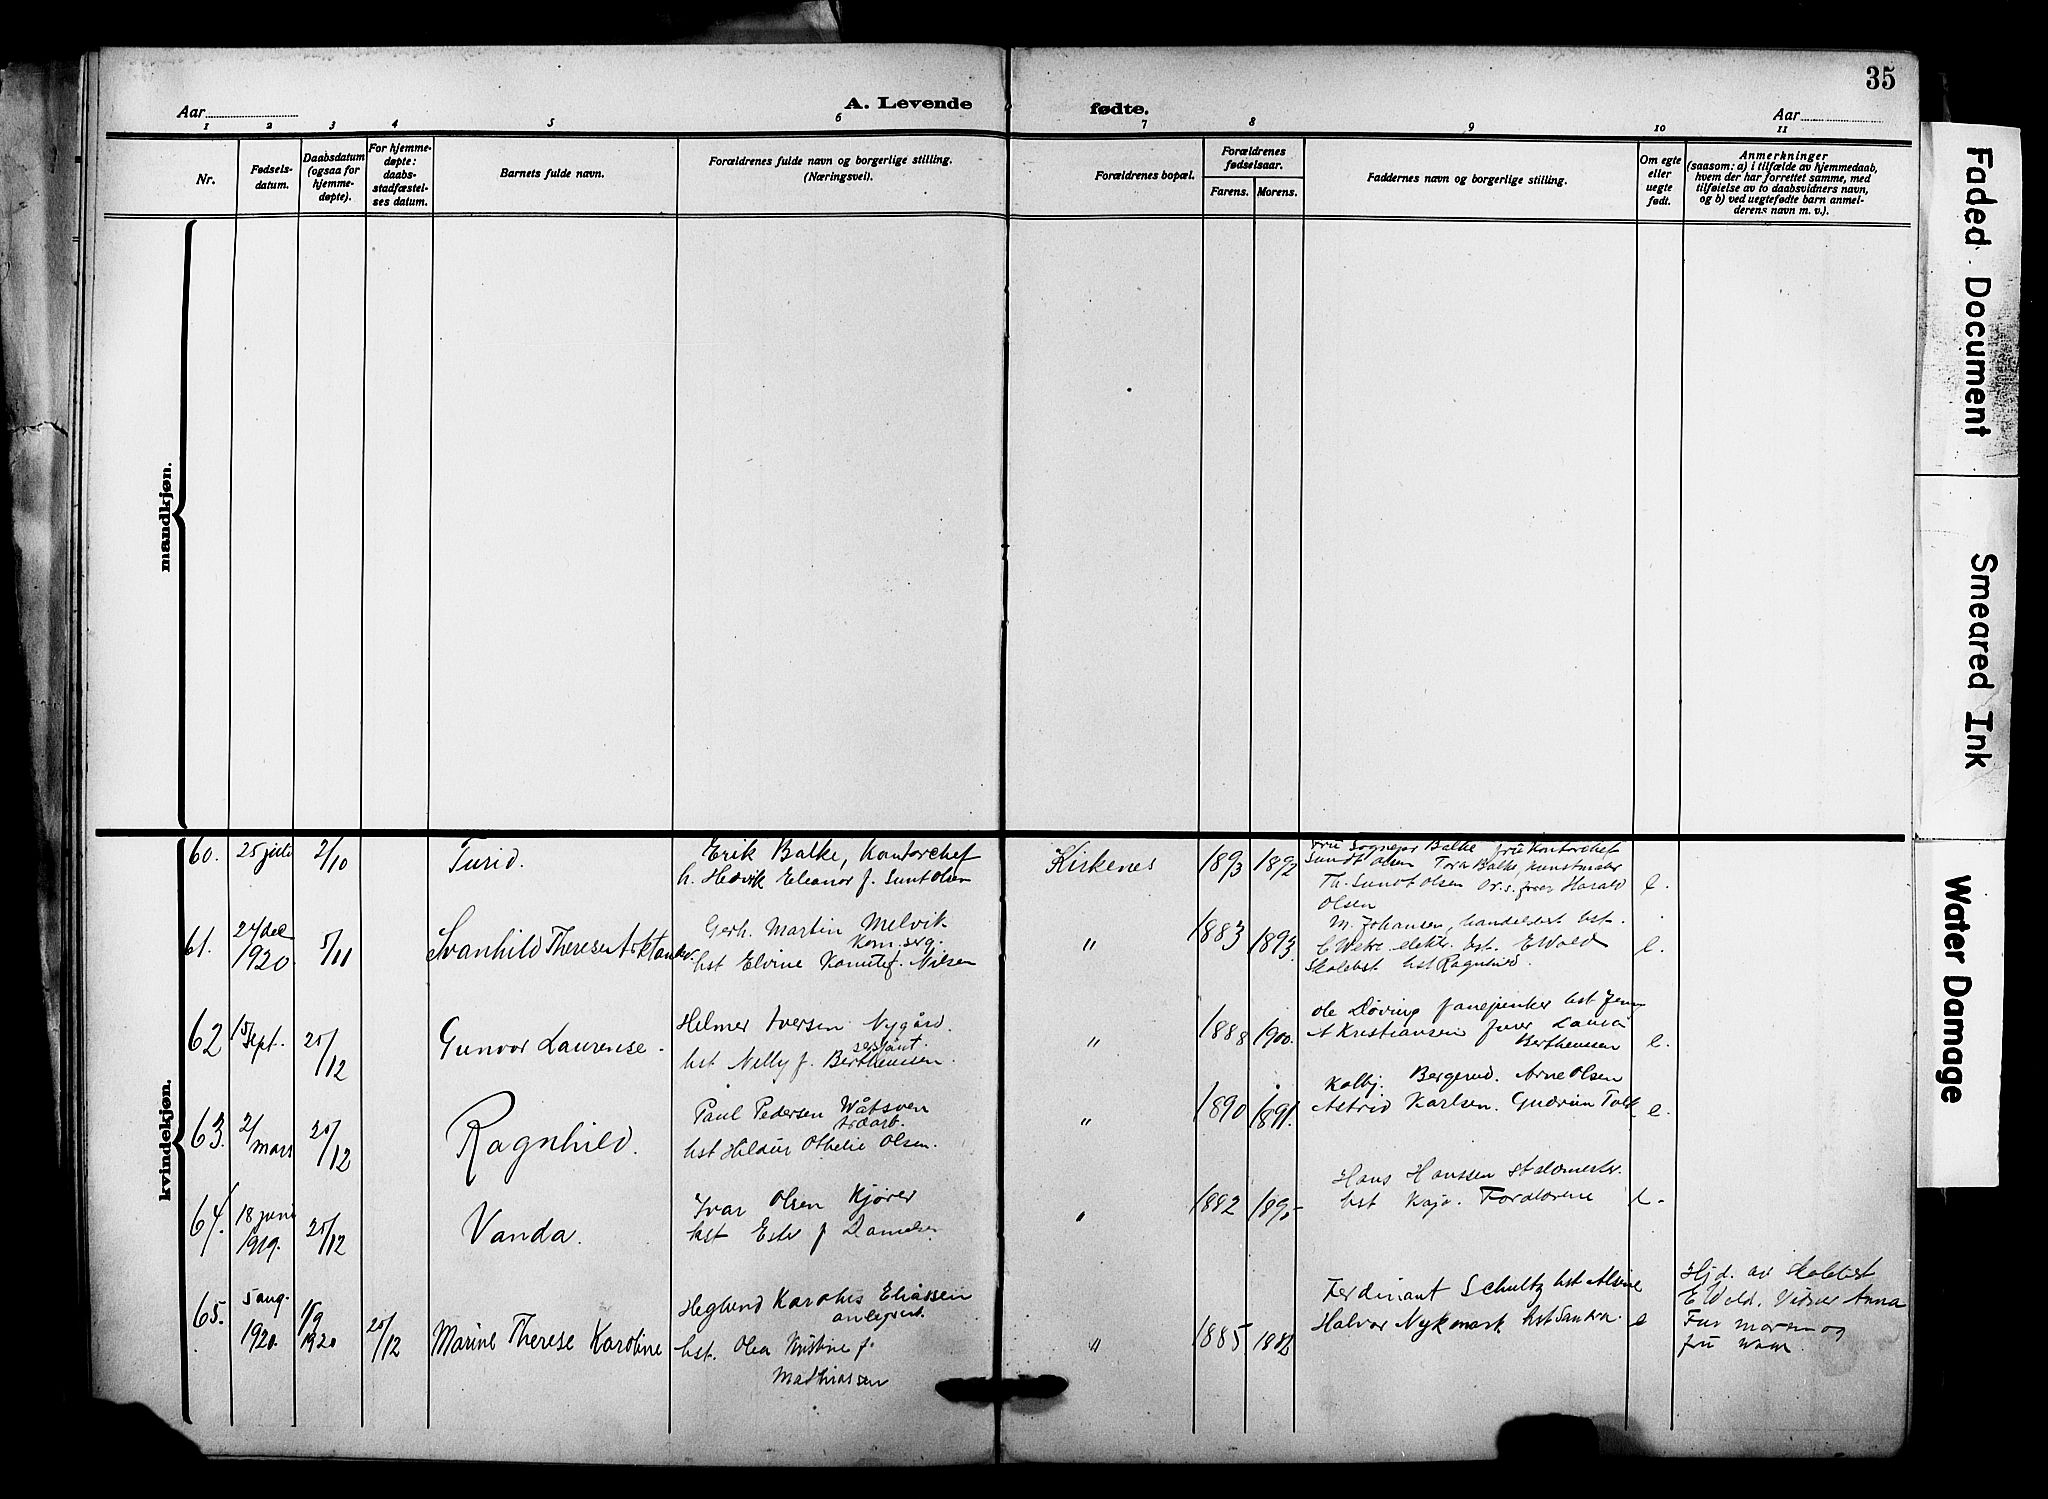 35
Aar
A. Levende
fødte.
Aar
1 2 3 4 5 6 7 8 9 10 11
Nr.
Fødsels-
datum.
Daabsdatum
(ogsaa for
hjemme-
døpte).
For hjemme-
døpte:
daabs-
stadfæstel-
ses datum.
Barnets fulde navn.
Forældrenes fulde navn og borgerlige stilling.
(Næringsvei).
Forældrenes bopæl.
Forældrenes
fødselsaar.
Farens. Morens.
Faddernes navn og borgerlige stilling.
Om egte
eller
uegte
født.
Anmerkninger
(saasom: a) i tilfælde av hjemmedaab,
hvem der har forrettet samme, med
tilføielse av to daabsvidners navn,
og b) ved uegtefødte barn anmel-
derens navn m. v.).
mandkjøn.
kvindekjøn.
60. 25 juli 2/10
Turid.
Erik Balke, Kontorchef
h. Hedvik Eleanor f. Sunt Olsen
Kirkenes
1893 1892
Fru Sognepr Balke fru Kontorchef
Sundt Olsen Tora Balke, kunstmaler
Th. Sundt Olsen Harald
Olsen
e.
61. 24 dec
1920. 5/11
Svanhild Therese
Gerh. Martin Melvik
hst Elvine f. Nilsen
"
1883 1893.
M. Johansen, handelsbest hst.
elektr. hst. EWold
Skolebst hst Ragnhild.
e.
62 15 Sept. 25/12
Gunvor Laurense.
Helmer Iversen Nygård.
sersjant.
hst Nelly f. Bertheussen.
"
1888 1900.
Ole Døving hst
A Kristiansen Laura
Bertheussen
e.
63. 2/mars 25/12
Ragnhild.
Paul Pedersen
hst Hildur Othelie Olsen.
"
1890 1891.
Kolbj. Bergerud. Arne Olsen
Astrid Karlsen. Gudrun
e.
64. 18 juni
1919. 25/12
Vanda.
Ivar Olsen Kjører
hst Ester f Danielsen
"
1882 1895
Hans Hanssen staldmester.
hst Kaja. Forældrene
e.
65. 5 aug.
1920. 15/9
1920 25/12
Marine Therese Karoline
Heglund Karolius Eliassen
hst. Olea Kristine f.
Mathiassen
"
1885 1882
Ferdinant Schultz hst Alvine
Halvor Nykmark hst Sandra.
e
Hjd. av Skolebst
E Wold. Vidner Anna
Far moren og
fru
Faded Document
Smeared Ink
Water Damage